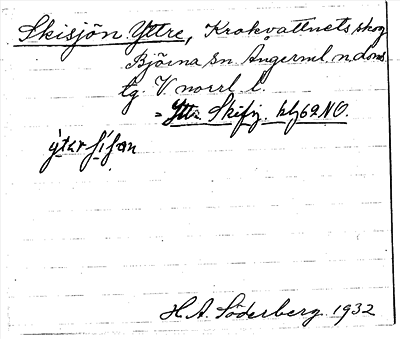 Skisjön Yttre, Krokvattnets skog
Björna sn. Ångerml. n. doms.
tg. V. norrl. l.
= Yttr. Skifsj. blj 62 NO.
ỳtər ʃíʃɷn
H. A. Söderberg. 1932